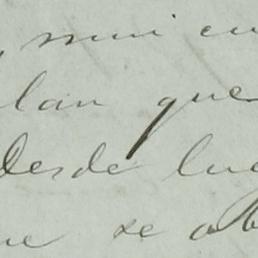 mui
lan que
Desde lue
ue se ab